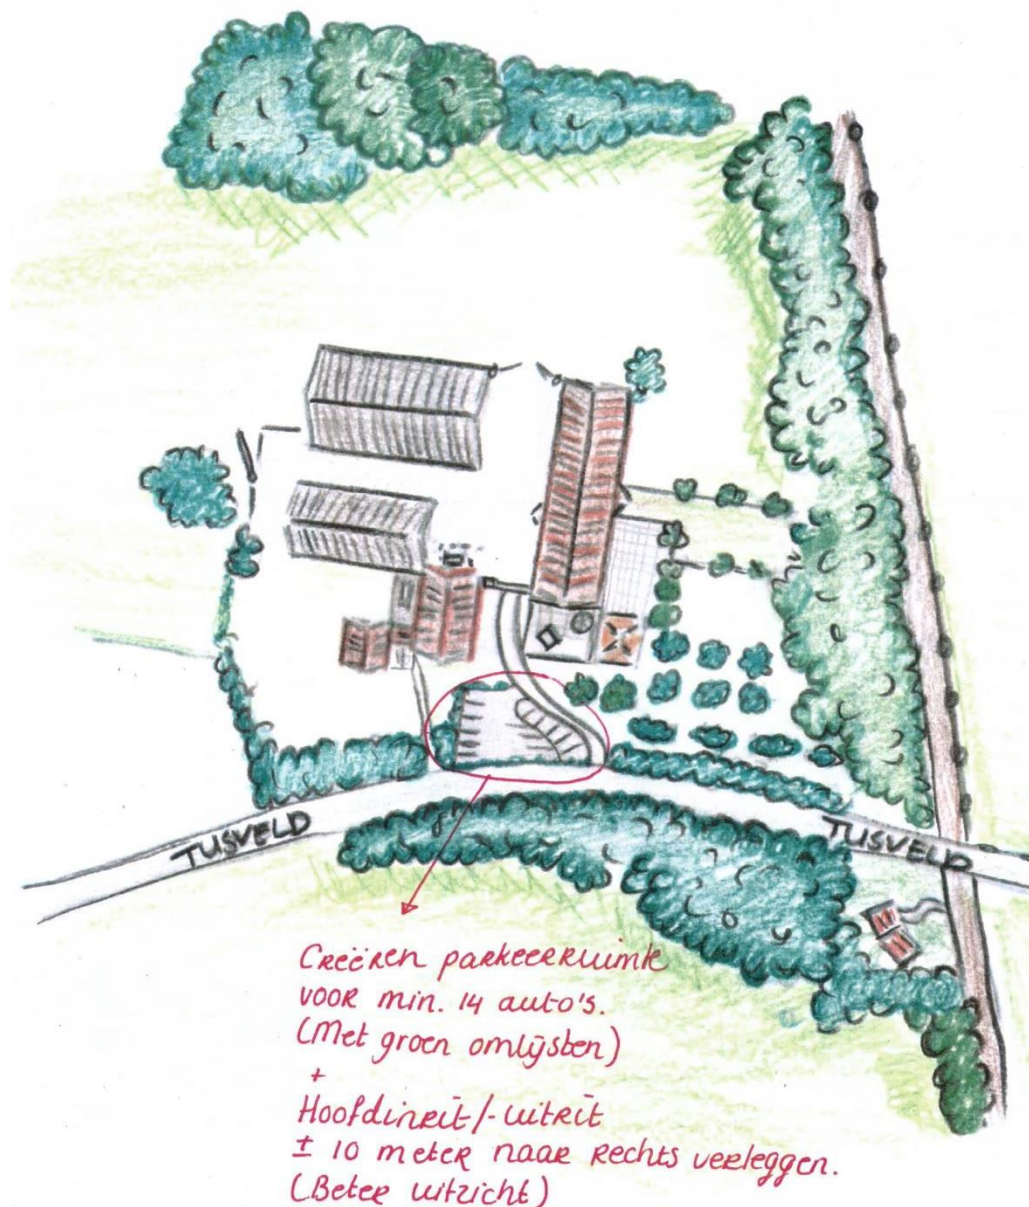 TUSVELD
TUSVELD
Creëren parkeerruimte
voor min. 14 auto's.
(Met groen omlijsten)
+
Hoofdinrit/-uitrit
± 10 meter naar rechts verleggen.
(Beter uitzicht)